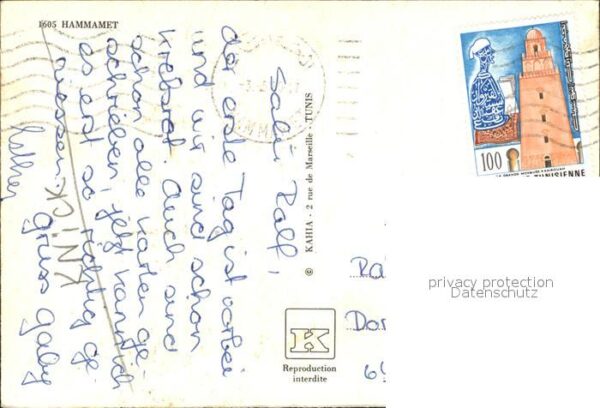 1605 HAMMAMET
Salü Ralf,
der erste Tag ist vorbei
und wir sind schon
krebsrot. Auch sind
schon alle Karten ge-
schrieben, jetzt kann ich
es erst so richtig ge-
niessen.
gruss gaby
KNICK
© KAHIA - 2 rue de Marseille - TUNIS
K
Reproduction
interdite
100
TUNISIENNE
privacy protection
Datenschutz
Ra
Dor